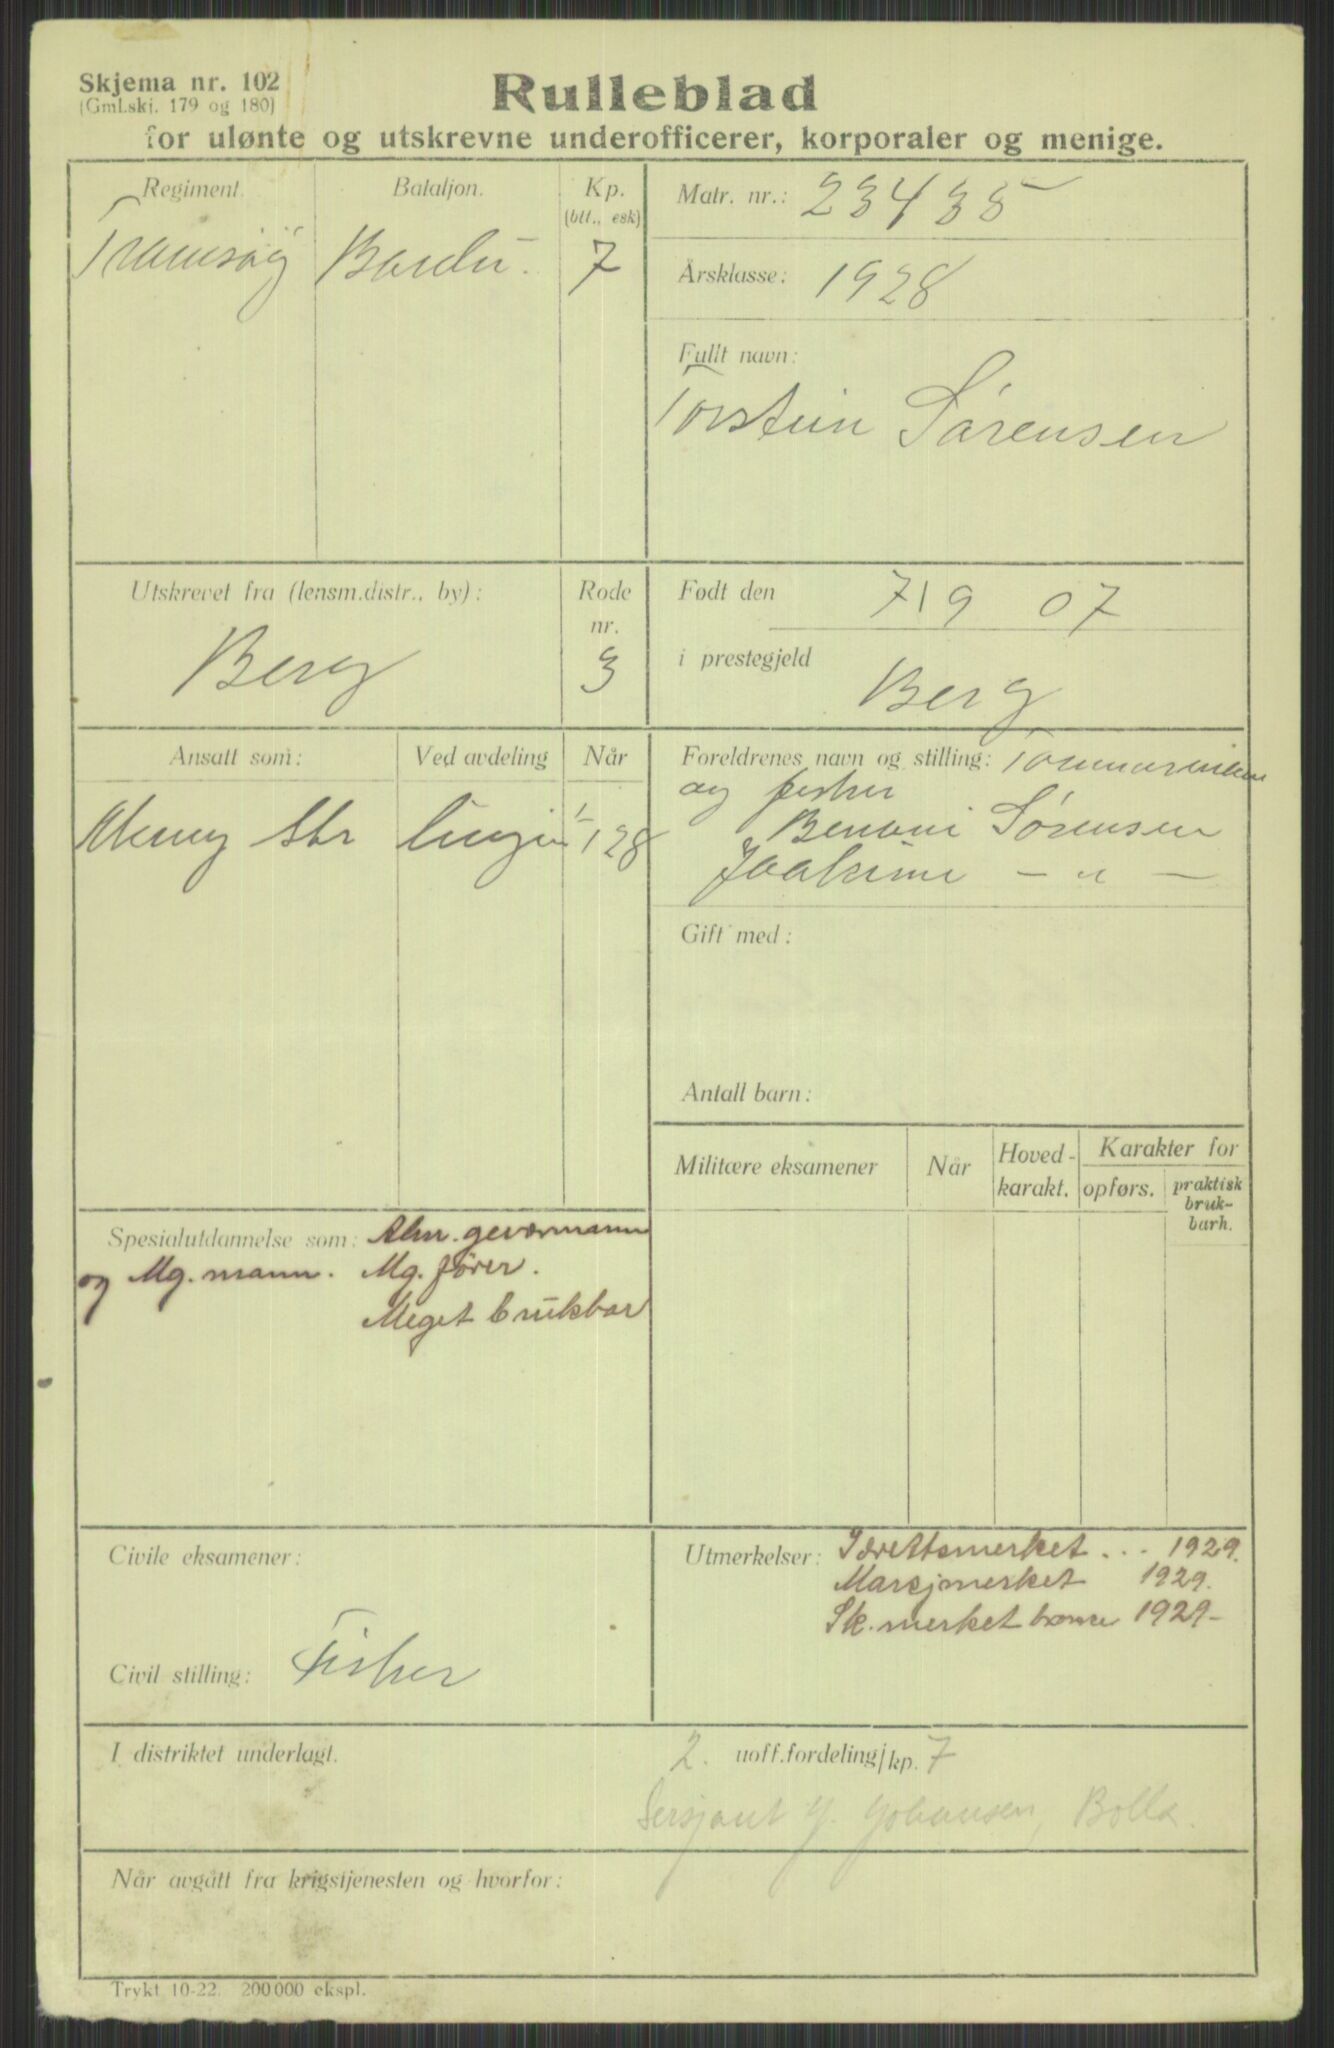 Skjema nr. 102
(Gml.skj. 179 og 180)
Rulleblad
for ulønte og utskrevne underofficerer, korporaler og menige.
Regiment. Bataljon. Kp. (btt., esk)
Bardu. 7
Matr. nr.: 23435
Årsklasse: 1928
Fullt navn:
Torstein Sørensen
Utskrevet fra (lensm.distr., by): Rode nr.
Berg 3
Født den 7/9 07
i prestegjeld
Berg
Ansatt som: Ved avdeling Når
Menig 1/1 28
Foreldrenes navn og stilling:
og fisker
Benoni Sørensen
Joakime — " —
Gift med:
Antall barn:
Militære eksamener Når Hoved-karakt. Karakter for
opførs. praktisk bruk-barh.
Spesialutdannelse som: Alm. geværmann
og Mg. mann. Mg. fører.
Meget brukbar
Civile eksamener:
Civil stilling: Fisker
Utmerkelser: Idrettsmerket ... 1929.
Marsjmerket 1929.
Sk. merket 1929.
I distriktet underlagt. 2. uoff.fordeling/kp. 7
Sersjant J. Johansen, Bolla.
Når avgått fra krigstjenesten og hvorfor:
Trykt 10-22. 200000 ekspl.